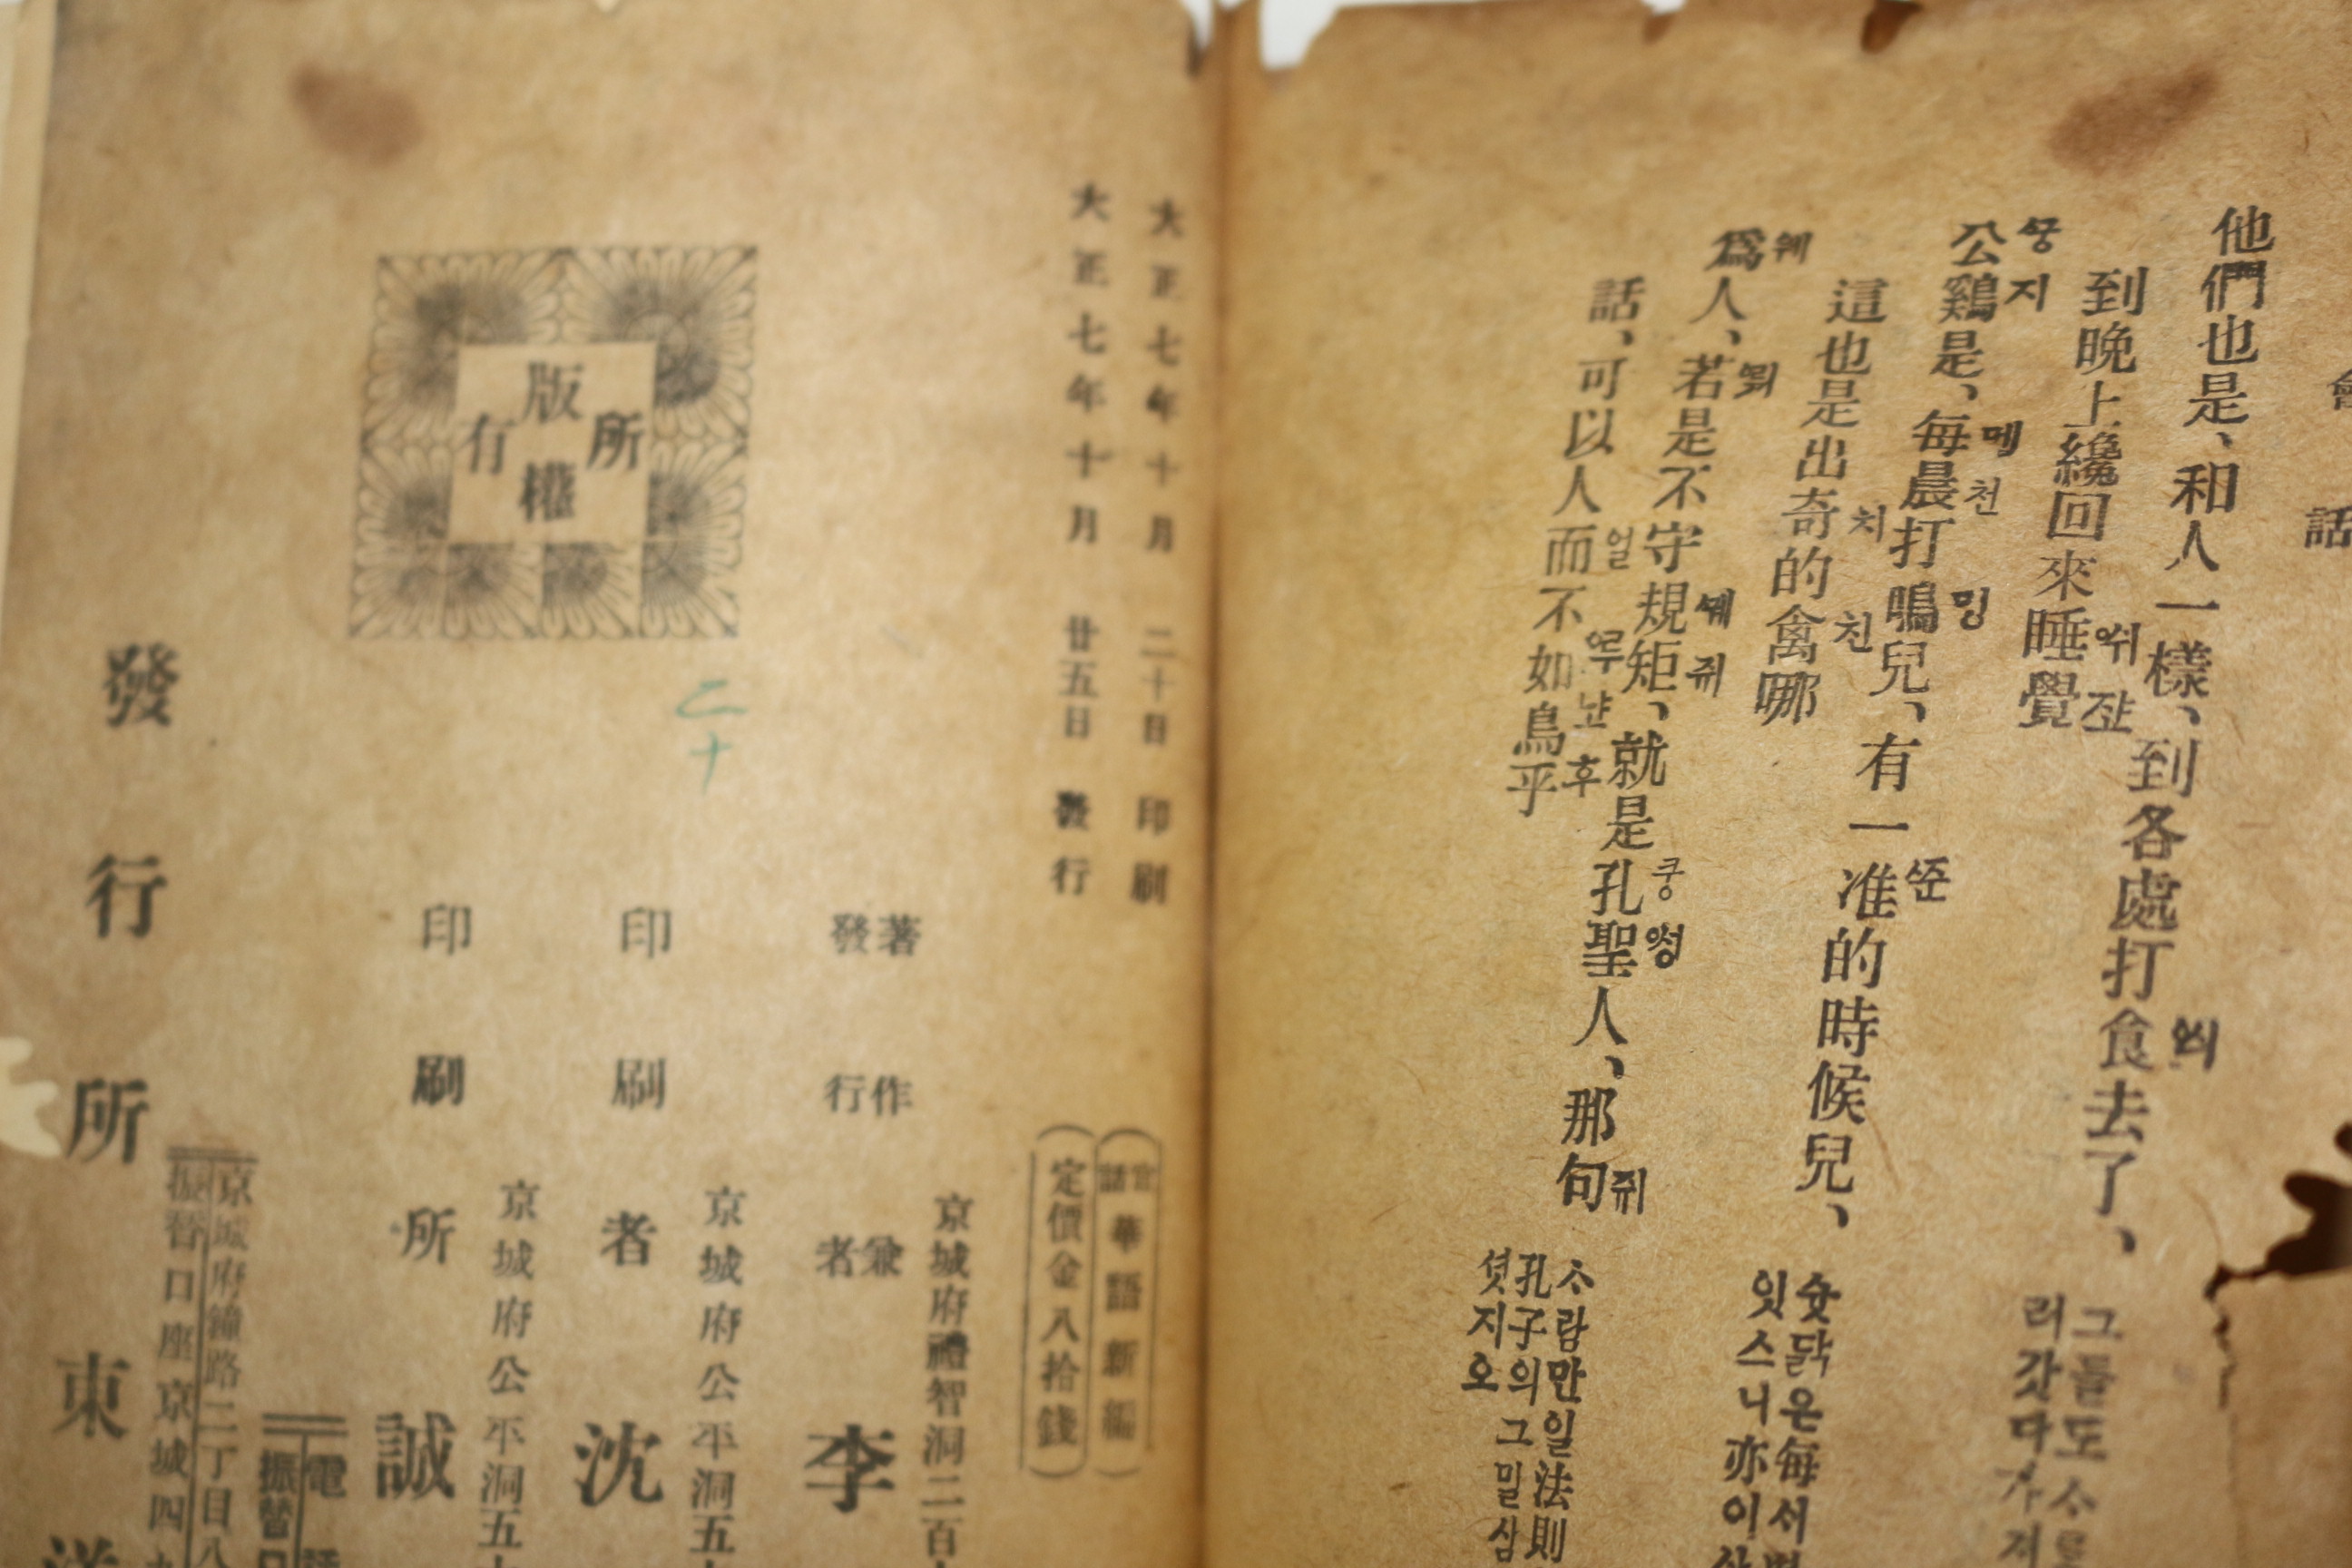 會話
他們也是、和人一樣、到各處打食去了、
씌
到晚上纔回來睡覺
쉬 쟢
그들도 사
러갓다가
公鷄是、每晨打鳴兒、有一准的時候兒、
지 메 천 밍 쑨
這也是出奇的禽哪
치 친
숫닭은每
잇스니亦이
爲人、若是不守規矩、就是孔聖人、那句
웨 쒜 쥐 쿵 썽 쥐
話、可以人而不如鳥乎
얼 루 냪 후
사람만일法則
孔子의그밀삼
셧지오
大正七年十月二十日印刷
大正七年十月廿五日發行
官話 華語新編
定價金八拾錢
版權所有
乙十
京城府禮智洞二百
著作兼
發行者 李
京城府公平洞五
印刷者 沈
京城府公平洞五
印刷所 誠
電話
振替口
京城府鐘路二丁目八
振替口座京城四
發行所 東洋